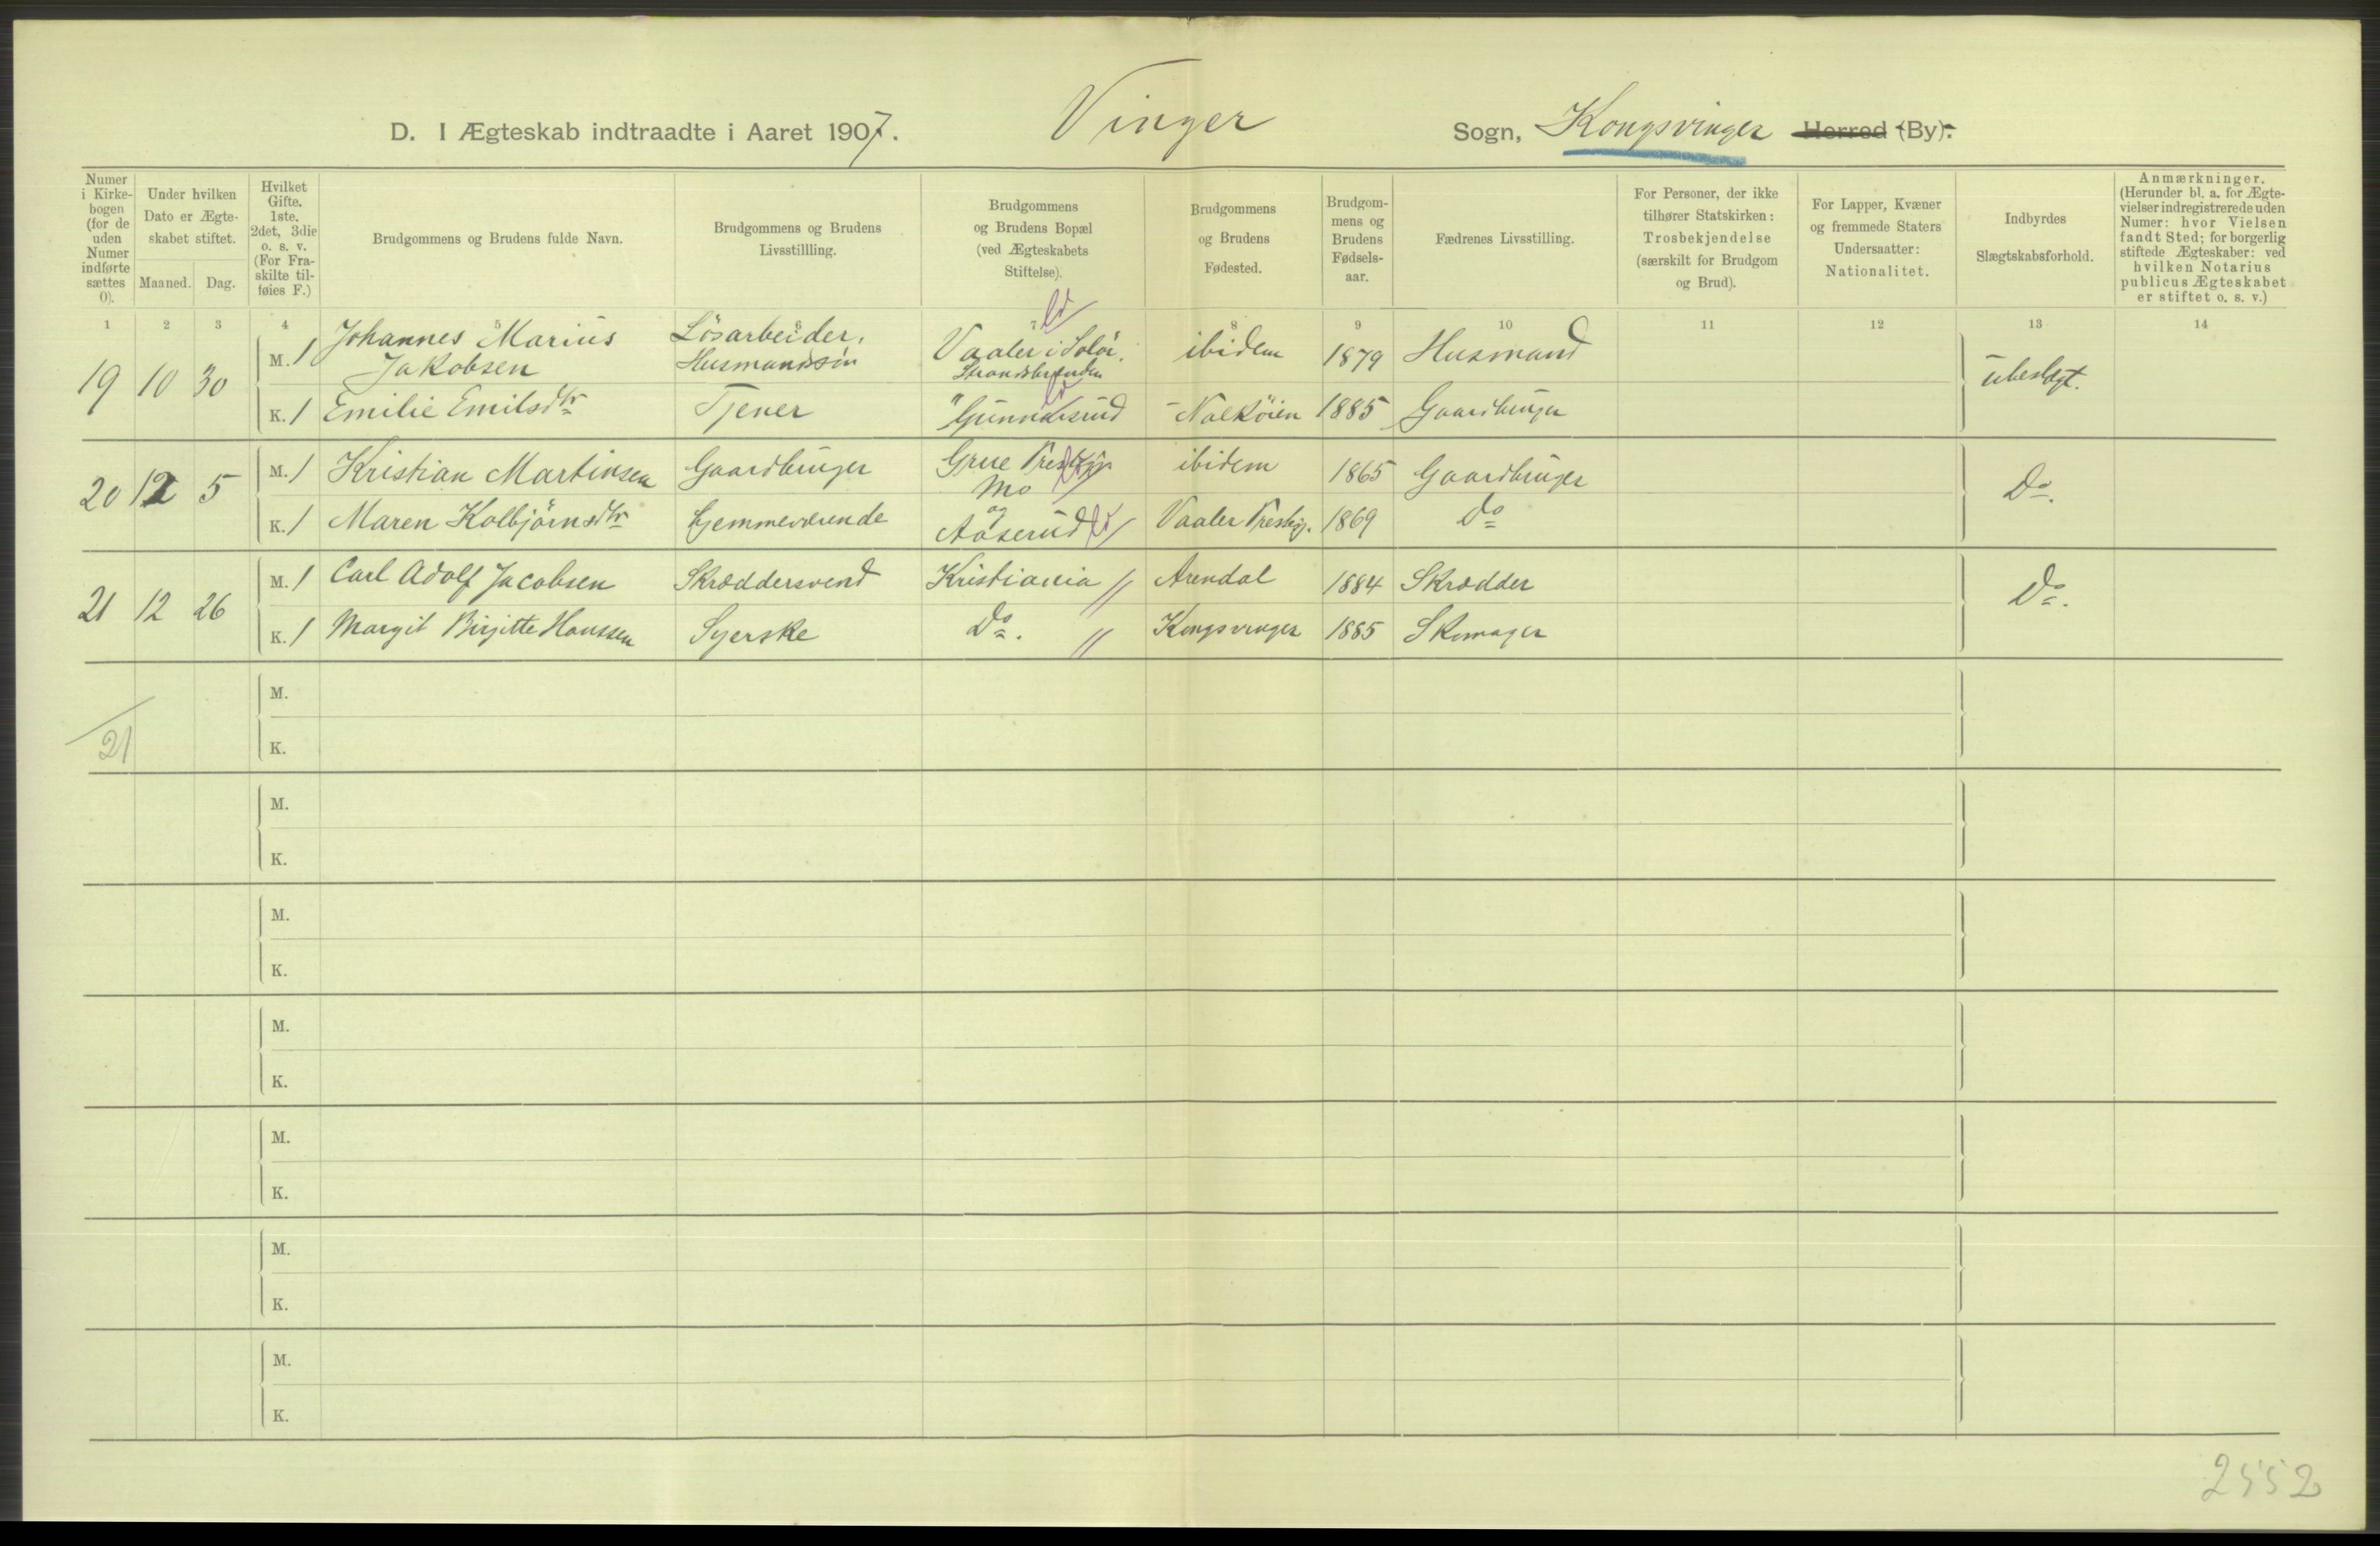 D. I Ægteskab indtraadte i Aaret 1907. Vinger Sogn, Kongsvinger Herred (By).
Numer i Kirkebogen (for de uden Numer indførte sættes 0).
Under hvilken Dato er Ægteskabet stiftet.
Maaned. Dag.
Hvilket Gifte. 1ste. 2det, 3die o. s. v. (For Fraskilte tilføies F.)
Brudgommens og Brudens fulde Navn.
Brudgommens og Brudens Livsstillling.
Brudgommens og Brudens Bopæl (ved Ægteskabets Stiftelse).
Brudgommens og Brudens Fødested.
Brudgommens og Brudens Fødselsaar.
Fædrenes Livsstilling.
For Personer, der ikke tilhører Statskirken: Trosbekjendelse (særskilt for Brudgom og Brud).
For Lapper, Kvæner og fremmede Staters Undersaatter: Nationalitet.
Indbyrdes Slægtskabsforhold.
Anmærkninger. (Herunder bl. a. for Ægtevielser indregistrerede uden Numer: hvor Vielsen fandt Sted; for borgerlig stiftede Ægteskaber: ved hvilken Notarius publicus Ægteskabet er stiftet o. s. v.)
1 2 3 4 5 6 7 8 9 10 11 12 13 14
19 10 30 M. 1 Johannes Marius Jakobsen Løsarbeider, Husmandssøn Vaaler i Solør, ibidem 1879 Husmand ubeslægt.
K. 1 Emilie Emilsdtr Tjener 1885 Gaardbruger
20 12 5 M. 1 Kristian Martinsen Gaardbruger Grue Prestgj. Mo ibidem 1865 Gaardbruger Do.
K. 1 Maren Kolbjørnsdtr hjemmeværende og Aaserud Vaaler Prestgj. 1869 Do
21 12 26 M. 1 Carl Adolf Jacobsen Skræddersvend Kristiania // Arendal 1884 Skrædder Do.
K. 1 Margit Birgitte Hanssen Syerske Do. // Kongsvinger 1885 Skomager
M.
21
K.
M.
K.
M.
K.
M.
K.
M.
K.
M.
K.
M.
K.
2552